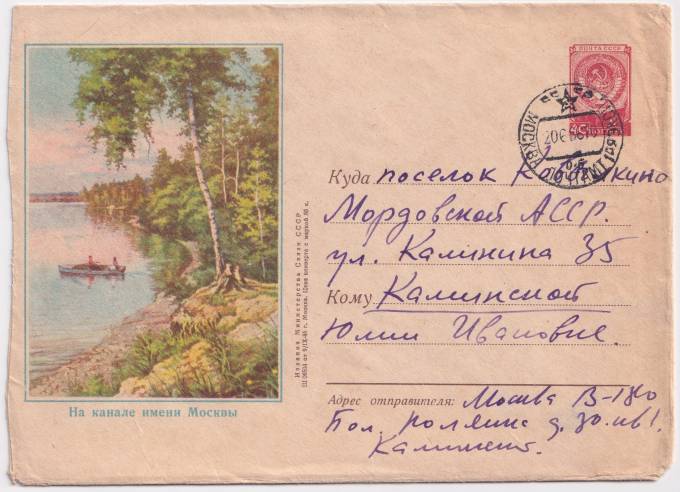 ПОЧТА СССР
40 КОП
МОСКВА
Куда поселок
Мордовской АССР.
ул. Калинина 35
Кому Калинской
Юлии Ивановне.
Адрес отправителя: Москва В-180
Бол. Полянка д. 30. кв 1.
На канале имени Москвы
Издание Министерства Связи СССР